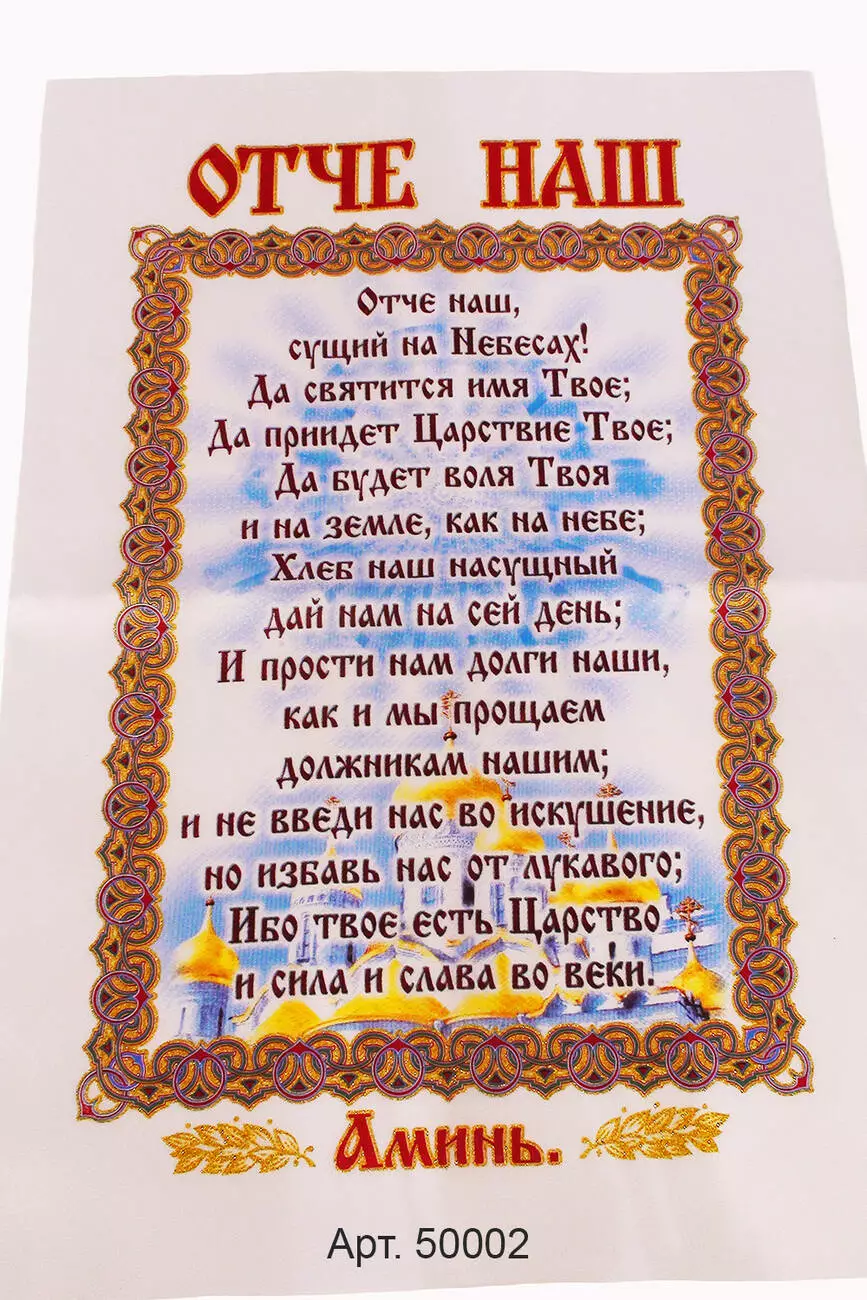 ОТЧЕ НАШ
Отче наш,
сущий на Небесах!
Да святится имя Твое;
Да приидет Царствие Твое;
Да будет воля Твоя
и на земле, как на небе;
Хлеб наш насущный
дай нам на сей день;
И прости нам долги наши,
как и мы прощаем
должникам нашим;
и не введи нас во искушение,
но избавь нас от лукавого;
Ибо твое есть Царство
и сила и слава во веки.
Аминь.
Арт. 50002